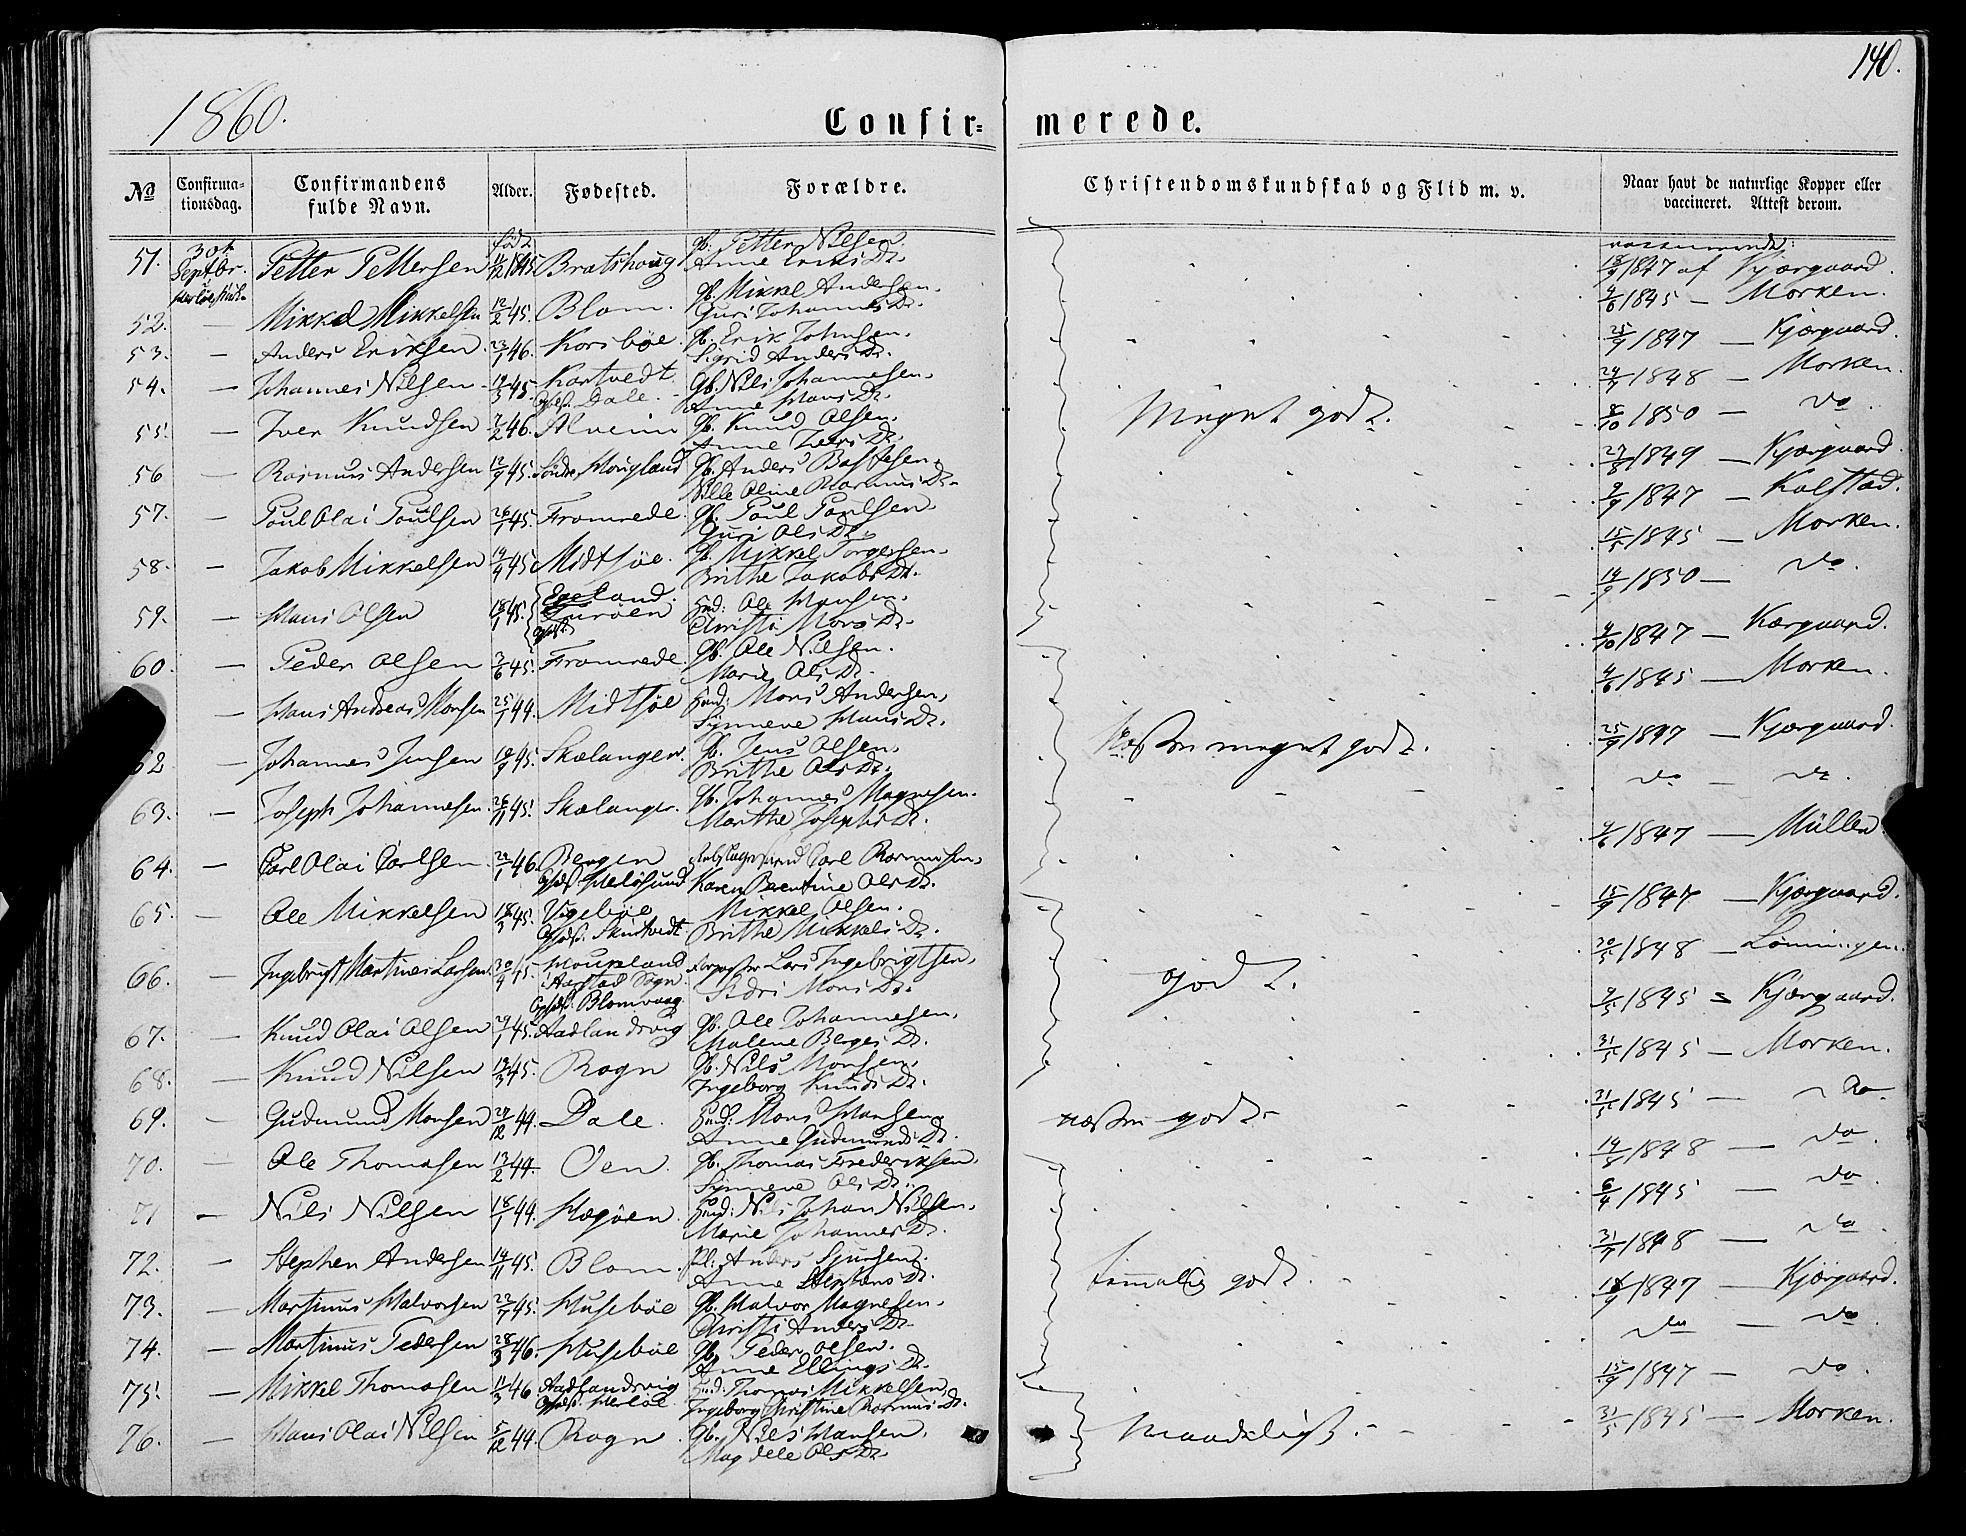 140.
1860.
Confir= merede.
No Confirma= tionsdag. Confirmandens fulde Navn. Alder. Fødested. Forældre. Christendomskundskab og Flid m. v. Naar havt de naturlige Kopper eller vaccineret. Attest derom.
født vaccinerede:
51. 30te Septbr. Petter Pettersen 1845. Bratshoug Gb. Petter Nilsen. Anne Eriks Dr. 18/9 1847 af Kjærgaard.
52. — Mikkel Mikkelsen 12/2 45. Blom. Gb. Mikkel Andersen. Guri Johannes Dr. 4/6 1845 — Morken.
53. — Anders Eriksen 23/1 46. Korsbøe. Gb. Erik Johnsen. Sigrid Anders Dr. 25/9 1847 — Kjærgaard.
54. — Johannes Nilsen 45. Kartvedt. Dale. Gb. Nils Johannesen. Anne Hans Dr. 1848 — Morken.
55. — Iver Knudsen 7/2 46. Alveim Gb. Knud Olsen. Anne Ivers Dr. Meget godt. 8/10 1850 — do.
56 — Rasmus Andersen 12/9 45. Søndre Hougland Gb. Anders Bastesen. Nille Oline Rasmus Dr. 1849 — Kjærgaard
57. — Poul Olai Poulsen 26/1 45. Fromrede. Gb. Poul Poulsen. Guri Ols Dr. 9/9 1847 — Kalstad.
58. — Jakob Mikkelsen 45 Midtøe. Gb. Mikkel Torgersen. Brithe Jakobs Dr. 15/5 1845 — Morken.
59. — Hans Olsen 18/1 45. Egeland. Turøen Ole Hansen. Christi Mons Dr. 14/9 1850 — do.
60. — Peder Olsen 3/6 45. Fromrede. Gb. Ole Nilsen. Marie Ols Dr. 4/10 1847 — Kærgaard.
— Hans Andreas Monsen 25/1 44. Midtøe Mons Andersen. Synneve Hans Dr. 4/6 1845 — Morken.
62 — Johannes Jensen 18/9 45. Skælanger. Gb. Jens Olsen. Brithe Ols Dr. Næsten meget godt. 25/9 1847 — Kjærgaard.
63. — Joseph Johannesen. 26/11 45. Skælanger. Gb. Johannes Magnesen. Marthe Josephs Dr. do — do.
64. — Carl Olai Carlsen. 20/1 46. Bergen Herløsund Carl Rasmusen. Karen Berentine Ols Dr. 1847 — Müller
65. — Ole Mikkelsen 18/3 45. Vigebøe Skurtvedt Mikkel Olsen. Brithe Mikkels Dr. 15/9 1847 — Kjærgaard.
66. — Ingebrigt Martines Larsen. 30/9 45. Houkeland Aarstad Sogn. Blomvaag Lars Ingebrigtsen. Sidri Mons Dr. godt. 30/5 1848 — Lønningen.
67. — Knud Olai Olsen 45. Aadlandsvig Gb. Ole Johannesen. Malene Berges Dr. 9/5 1845 = Kjærgaard.
68. — Knud Nilsen 13/3 45. Rogn Gb. Nils Monsen. Ingeborg Knuds Dr. 31/5 1845 — Morken.
69. — Gudmund Monsen 29/12 44. Dale. Mons Hansen. Anne Gudmunds Dr. næsten godt. 31/5 1845 — do
70. — Ole Thomasen 13/2 44. Oen. Gb. Thomas Frederiksen. Synneve Ols Dr. 14/8 1848 — do.
71 — Nils Nilsen 18/1 44. Hægøen. Nils Johan Nilsen. Marie Johannes Dr. 6/4 1845 — do.
72. — Stephen Andersen 14/11 45. Blom. Pl. Anders Sjursen. Anne Stephens Dr. temmelig godt. 31/7 1848 — do
73. — Martinus Halvorsen 22/7 45. Husebøe Gb. Halvor Magnesen. Christi Anders Dr. 18/9 1847 — Kjærgaard.
74. — Martinus Pedersen 28/3 46. Husebøe Gb. Peder Olsen. Anne Ellings Dr. do — do
75. — Mikkel Thomasen 11/3 46 Aadlandsvig Herløe Thomas Mikkelsen. Ingeborg Christine Rasmus Dr. 15/9 1847 — do.
76. — Hans Olai Nilsen 5/12 44. Rogn Gb. Nils Hansen. Magdele Ols Dr. Maadeligt. 31/5 1845 — Morken.